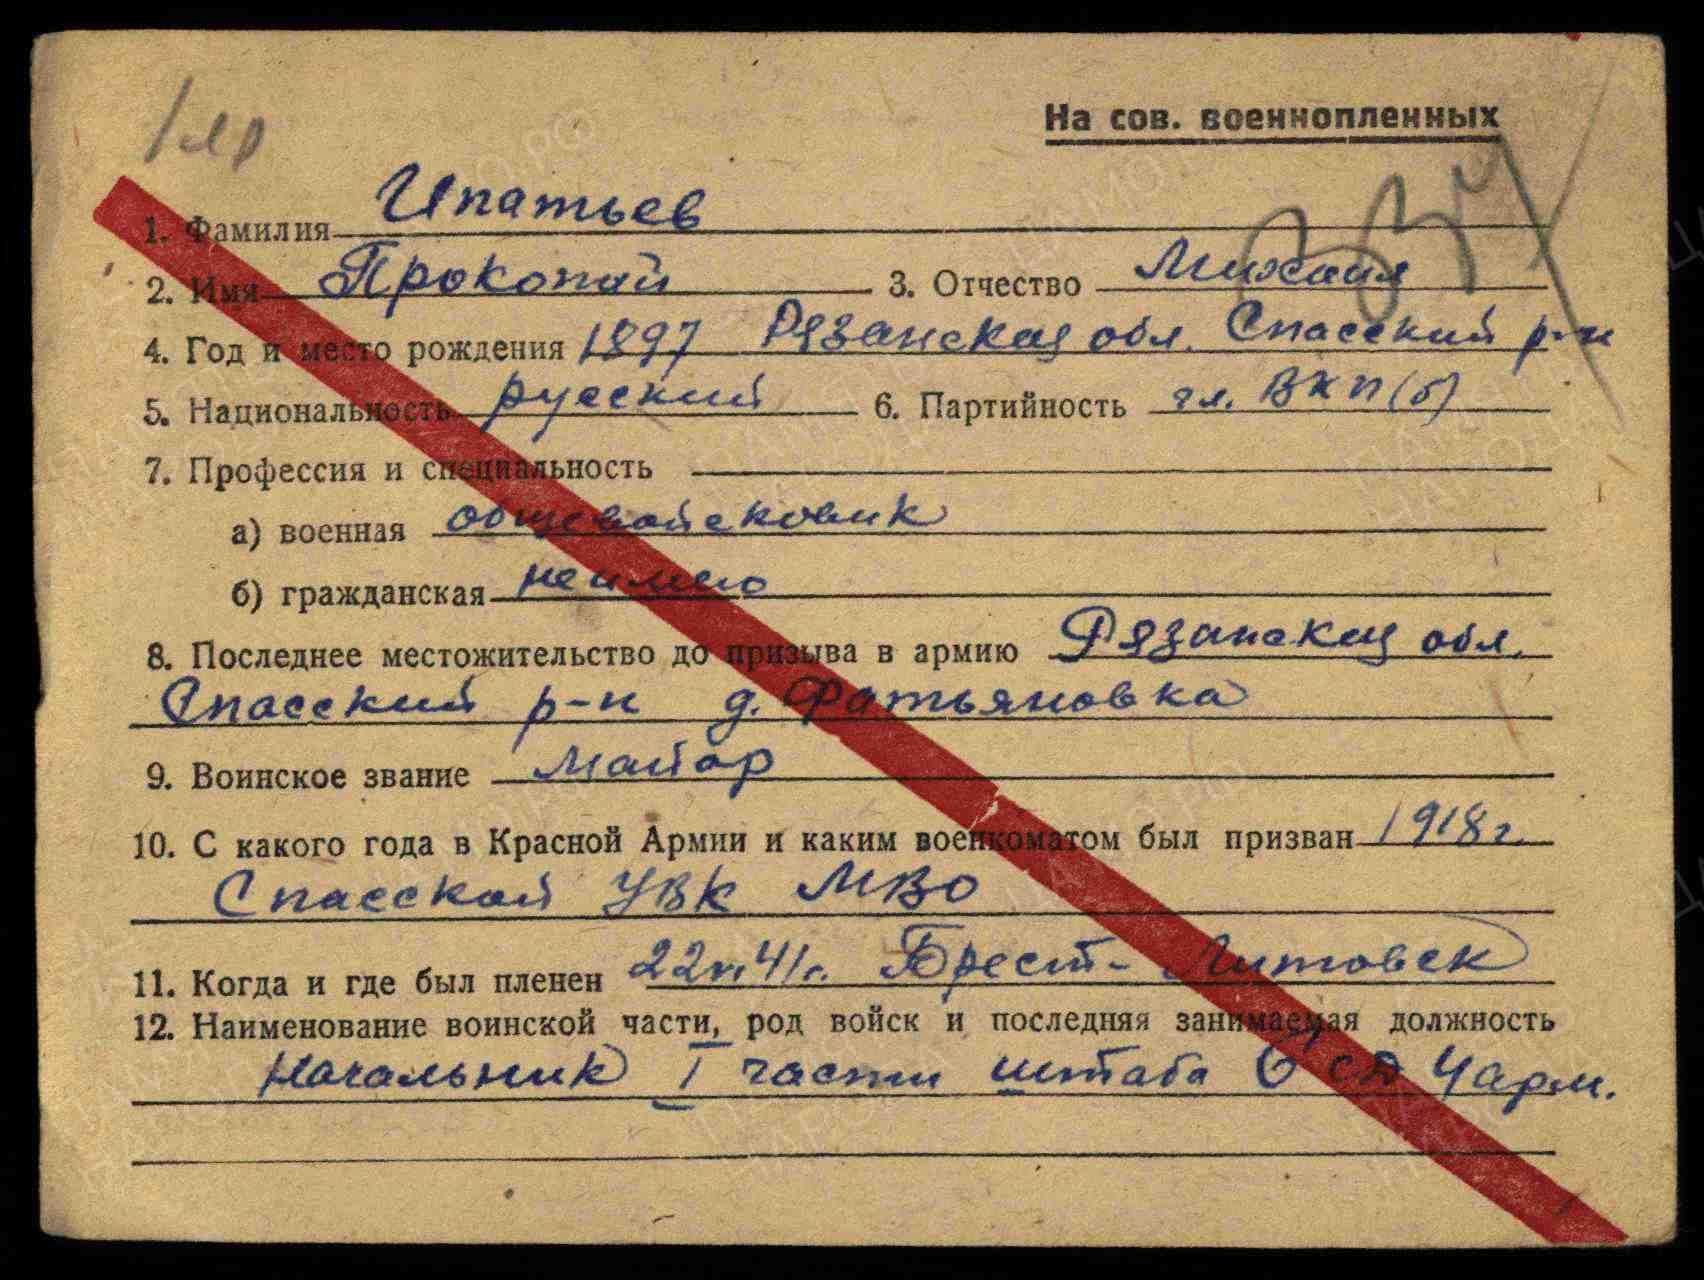 На сов. военнопленных
1. Фамилия Ипатьев
2. Имя Прокопий 3. Отчество Михаил
4. Год и место рождения 1897 Рязанская обл. Спасский р-н
5. Национальность русский 6. Партийность чл. ВКП(б)
7. Профессия и специальность
а) военная общевойсковик
б) гражданская не имею
8. Последнее местожительство до призыва в армию Рязанская обл.
Спасский р-н д. Фатьяновка
9. Воинское звание майор
10. С какого года в Красной Армии и каким военкоматом был призван 1918 г.
Спасской УВК МВО
11. Когда и где был пленен Брест-Литовск
12. Наименование воинской части, род войск и последняя занимаемая должность
Начальник I части штаба 6 СД 4 арм.